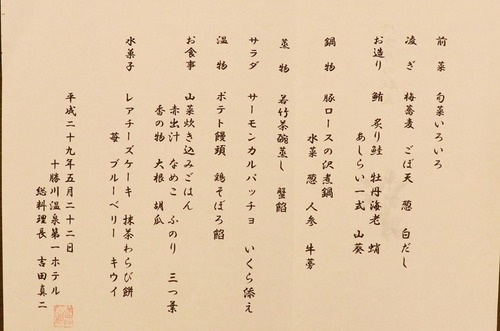 前菜 旬菜いろいろ
凌ぎ 梅蕎麦 ごぼ天 葱 白だし
お造り 鮪 炙り鮭 牡丹海老 蛸
あしらい一式 山葵
鍋物 豚ロースの沢煮鍋
水菜 葱 人参 牛蒡
蒸物 若竹茶碗蒸し 蟹餡
サラダ サーモンカルパッチョ いくら添え
温物 ポテト饅頭 鶏そぼろ餡
お食事 山菜炊き込みごはん
赤出汁 なめこ ふのり 三つ葉
香の物 大根 胡瓜
水菓子 レアチーズケーキ 抹茶わらび餅
苺 ブルーベリー キウイ
平成二十九年五月二十二日
十勝川温泉第一ホテル
総料理長 吉田真二